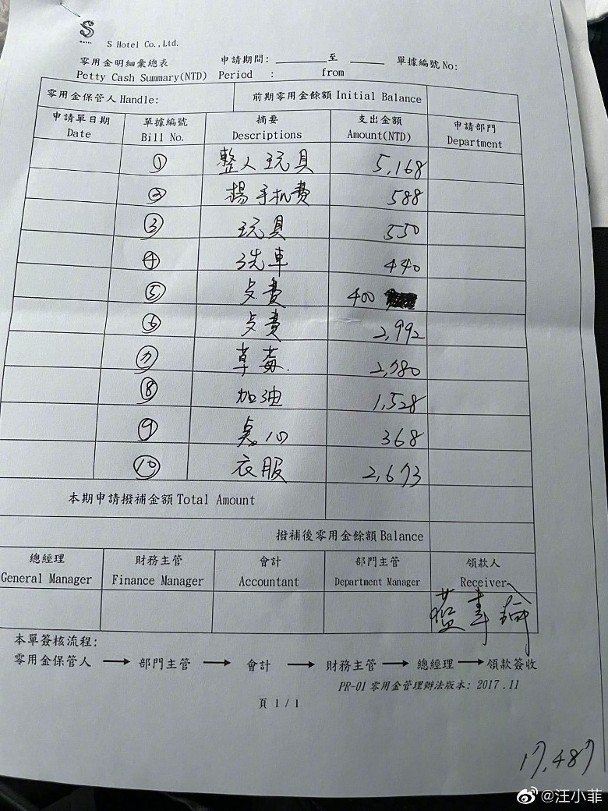 S
S Hotel Co.,Ltd.
零用金明細彙總表 申請期間: 至 單據編號No:
Petty Cash Summary(NTD) Period : from
零用金保管人Handle: 前期零用金餘額Initial Balance
申請單日期 單據編號 摘要 支出金額 申請部門
Date Bill No. Descriptions Amount(NTD) Department
① 整人玩具 5,168
② 楊手机費 588
③ 玩具 550
④ 洗車 440
⑤ 歺費 400
⑥ 歺費 2,992
⑦ 草莓 2,780
⑧ 加油 1,528
⑨ 奌心 368
⑩ 衣服 2,673
本期申請撥補金額Total Amount
撥補後零用金餘額Balance
總經理 財務主管 會計 部門主管 領款人
General Manager Finance Manager Accountant Department Manager Receiver
本單簽核流程:
零用金保管人 → 部門主管 → 會計 → 財務主管 → 總經理 → 領款簽收
PR-01 零用金管理辦法版本: 2017.11
頁 1/1
17,487
@汪小菲